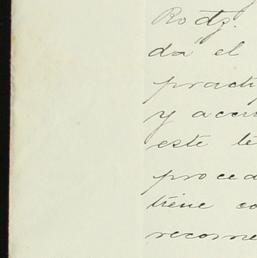 Rodz.
da el
practi
y acom
este te
proced
tiene co
recome